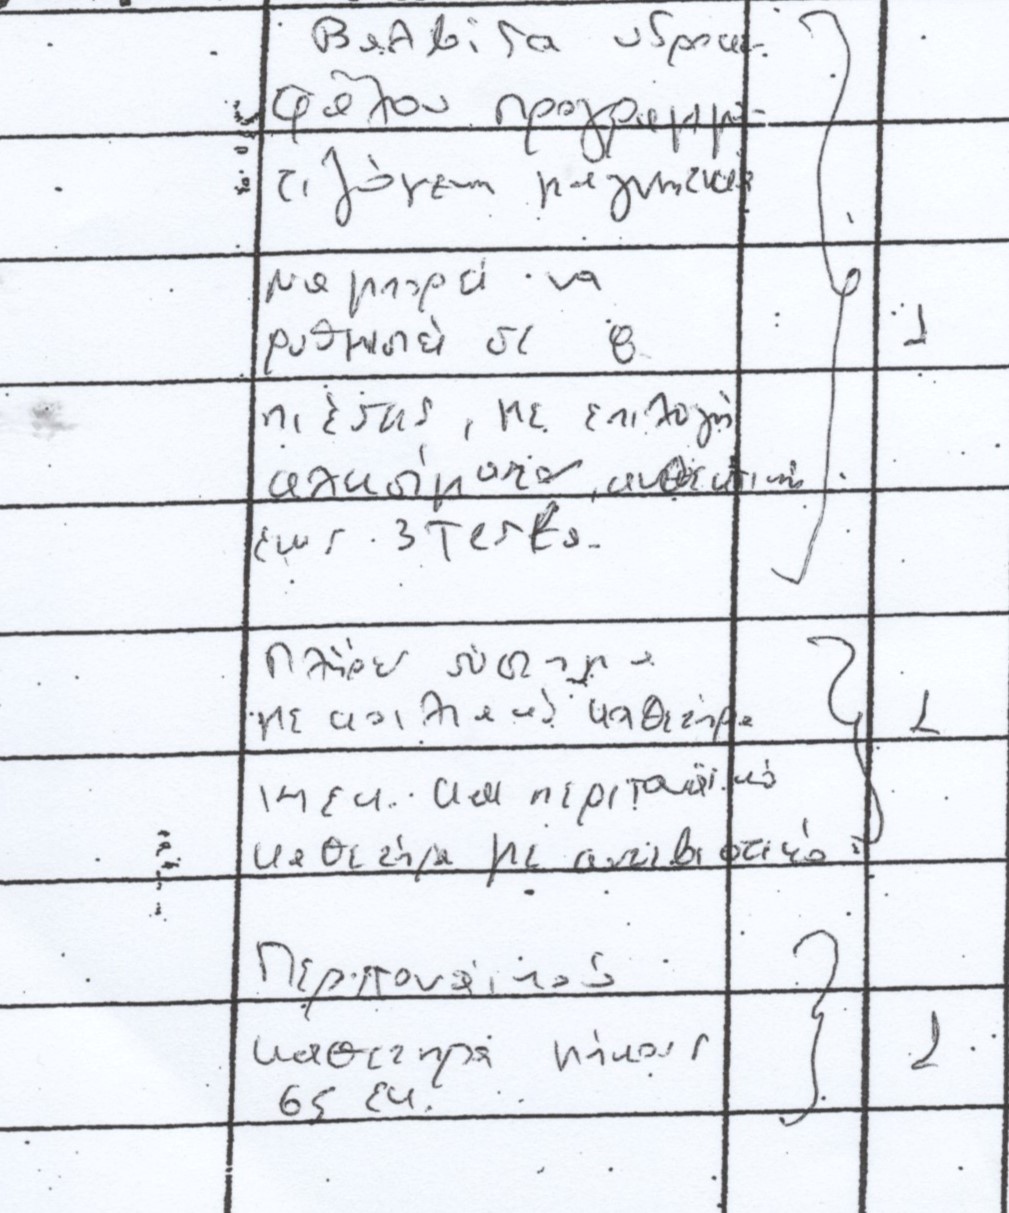 Βαλβίδα υδροκε-
φάλου προγραμμα-
τιζόμενη μαγνητικά
να μπορεί να
ρυθμιστεί σε 8
πιέσεις, με επιλογή
κλεισίματος, ανθεκτική
έως 3 Tesla.
1
Πλήρες σύστημα
με κοιλιακό καθετήρα
1
14 εκ. και περιτοναϊκό
καθετήρα με αντιβιοτικό
Περιτοναϊκός
καθετήρα μήκους
1
65 εκ.